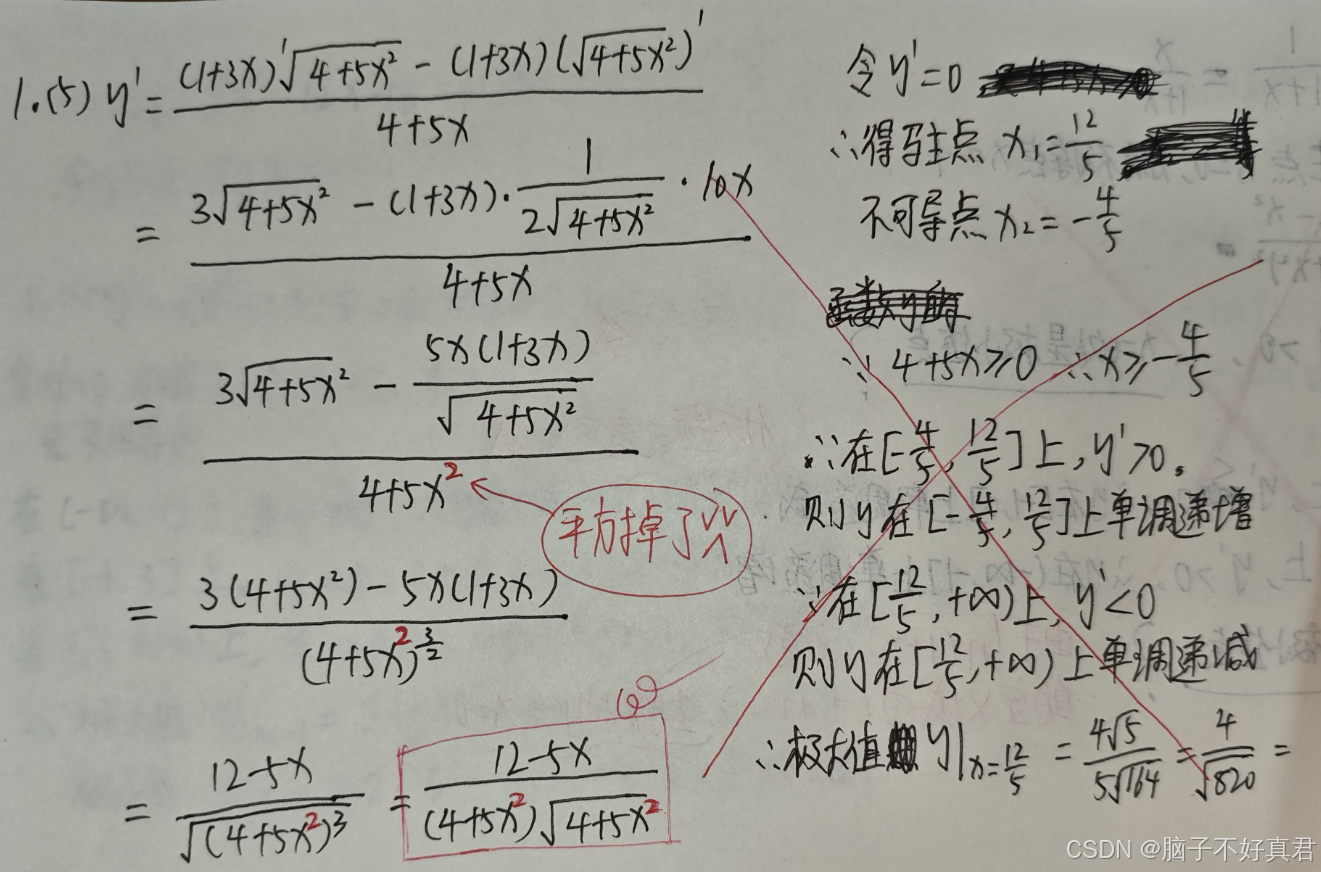 1.(5) y' = ((1+3x)'√(4+5x²) - (1+3x)(√(4+5x²))') / (4+5x)
= (3√(4+5x²) - (1+3x)·1/(2√(4+5x²))·10x) / (4+5x)
= (3√(4+5x²) - 5x(1+3x)/√(4+5x²)) / (4+5x²)
平方掉了!!
= (3(4+5x²) - 5x(1+3x)) / (4+5x²)^(3/2)
= (12-5x)/√((4+5x²)³) = (12-5x)/((4+5x²)√(4+5x²))
令y'=0
∴得驻点 x₁=12/5
不可导点 x₂=-4/5
∵ 4+5x≥0 ∴x≥-4/5
∵在[-4/5, 12/5]上, y'>0。
则y在[-4/5, 12/5]上单调递增
∵在[12/5, +∞)上, y'<0
则y在[12/5, +∞)上单调递减
∴极大值 y|x=12/5 = 4√5/(5√164) = 4/√820 =
CSDN @脑子不好真君